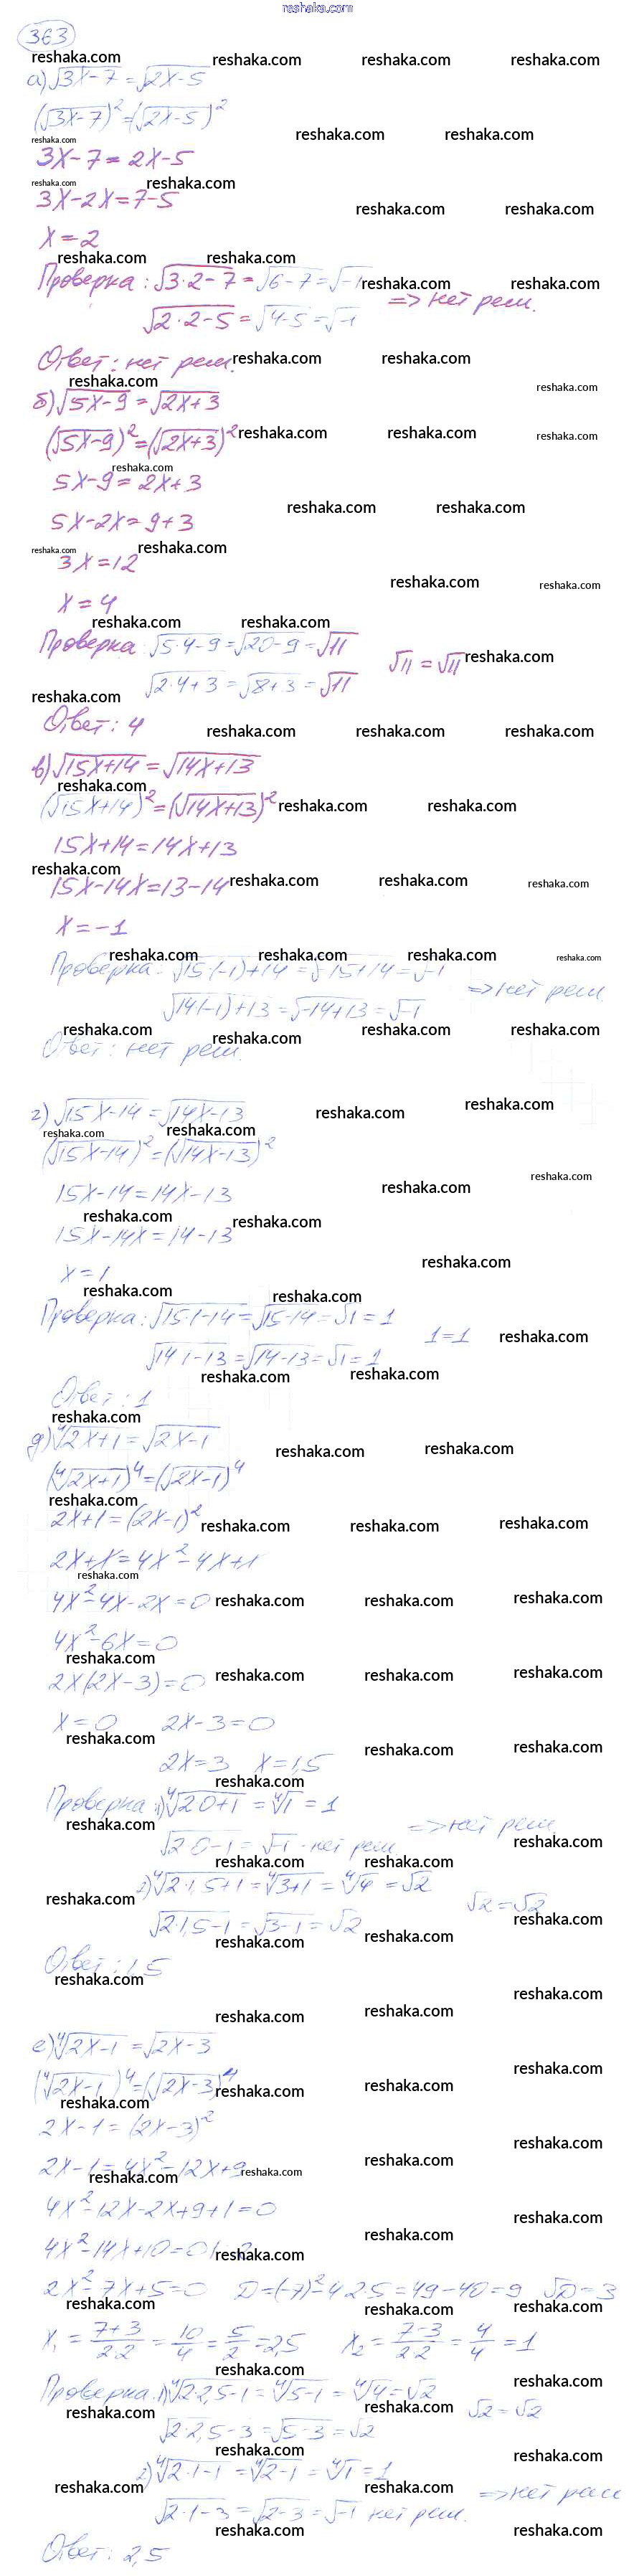 reshaka.com
363
а) √3x-7 = √2x-5
(√3x-7)² = (√2x-5)²
3x-7 = 2x-5
3x-2x = 7-5
x = 2
Проверка: √3·2-7 = √6-7 = √-1
√2·2-5 = √4-5 = √-1 => нет реш.
Ответ: нет реш.
б) √5x-9 = √2x+3
(√5x-9)² = (√2x+3)²
5x-9 = 2x+3
5x-2x = 9+3
3x = 12
x = 4
Проверка: √5·4-9 = √20-9 = √11
√2·4+3 = √8+3 = √11 √11 = √11
Ответ: 4
в) √15x+14 = √14x+13
(√15x+14)² = (√14x+13)²
15x+14 = 14x+13
15x-14x = 13-14
x = -1
Проверка: √15(-1)+14 = √-15+14 = √-1
√14(-1)+13 = √-14+13 = √-1 => нет реш.
Ответ: нет реш.
г) √15x-14 = √14x-13
(√15x-14)² = (√14x-13)²
15x-14 = 14x-13
15x-14x = 14-13
x = 1
Проверка: √15·1-14 = √15-14 = √1 = 1
√14·1-13 = √14-13 = √1 = 1 1=1
Ответ: 1
д) ⁴√2x+1 = √2x-1
(⁴√2x+1)⁴ = (√2x-1)⁴
2x+1 = (2x-1)²
2x+1 = 4x²-4x+1
4x²-4x-2x = 0
4x²-6x = 0
2x(2x-3) = 0
x = 0 2x-3 = 0
2x = 3 x = 1,5
Проверка: 1) ⁴√2·0+1 = ⁴√1 = 1
√2·0-1 = √-1 - нет реш. => нет реш.
2) ⁴√2·1,5+1 = ⁴√3+1 = ⁴√4 = √2
√2·1,5-1 = √3-1 = √2 √2 = √2
Ответ: 1,5
е) ⁴√2x-1 = √2x-3
(⁴√2x-1)⁴ = (√2x-3)⁴
2x-1 = (2x-3)²
2x-1 = 4x²-12x+9
4x²-12x-2x+9+1 = 0
4x²-14x+10 = 0 |:2
2x²-7x+5 = 0 D = (-7)²-4·2·5 = 49-40 = 9 √D = 3
x₁ = (7+3)/(2·2) = 10/4 = 5/2 = 2,5 x₂ = (7-3)/(2·2) = 4/4 = 1
Проверка: 1) ⁴√2·2,5-1 = ⁴√5-1 = ⁴√4 = √2
√2·2,5-3 = √5-3 = √2 √2 = √2
2) ⁴√2·1-1 = ⁴√2-1 = ⁴√1 = 1
√2·1-3 = √2-3 = √-1 нет реш. => нет реш
Ответ: 2,5